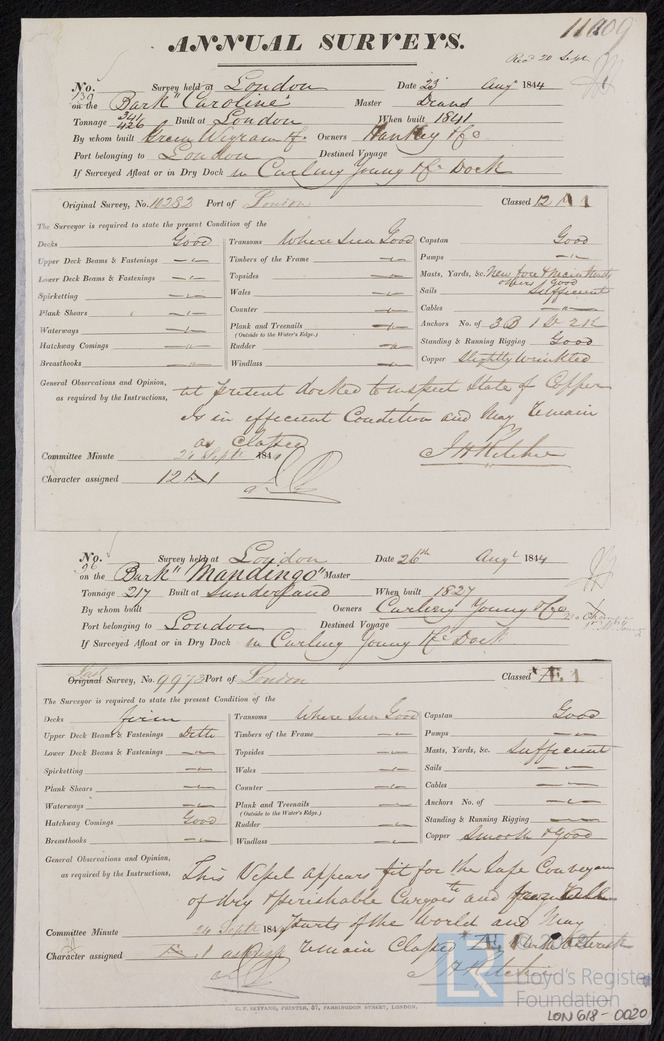 11409
ANNUAL SURVEYS.
Recd 20 Sept
No. 139 Survey held at London Date 23 Augt 1844
on the Bark "Caroline" Master Deans
Tonnage 341 426 Built at London When built 1841
By whom built Green Wigram & Co Owners Hankey & Co
Port belonging to London Destined Voyage
If Surveyed Afloat or in Dry Dock in Curling Young & Co Dock
Original Survey, No. 10282 Port of London Classed 12 A 1
The Surveyor is required to state the present Condition of the
Decks Good Transoms Where Seen Good Capstan Good
Upper Deck Beams & Fastenings — " — Timbers of the Frame — " — Pumps — " —
Lower Deck Beams & Fastenings — " — Topsides — " — Masts, Yards, &c. New fore & Main Masts others good
Spirketting — " — Wales — " — Sails Sufficient
Plank Shears — " — Counter — " — Cables — " —
Waterways — " — Plank and Treenails — " — Anchors No. of 3 B 1 S 2 K
(Outside to the Water's Edge.)
Hatchway Comings — " — Rudder — " — Standing & Running Rigging Good
Breasthooks — " — Windlass — " — Copper Slightly Wrinkled
General Observations and Opinion, as required by the Instructions,
at present docked to inspect State of Copper
is in effecient Condition and May remain
as Classed
J H Ritchie
Committee Minute 24 Septr 1844
Character assigned 12 A 1
No. 96 Survey held at London Date 26th Augt 1844
on the Bark "Mandingo" Master
Tonnage 217 Built at Sunderland When built 1827
By whom built Owners Curling Young & Co
Port belonging to London Destined Voyage
If Surveyed Afloat or in Dry Dock in Curling Young & Co Dock
Last
Original Survey, No. 9973 Port of London Classed *Æ 1
The Surveyor is required to state the present Condition of the
Decks firm Transoms Where Seen Good Capstan Good
Upper Deck Beams & Fastenings Ditto Timbers of the Frame — " — Pumps — " —
Lower Deck Beams & Fastenings — " — Topsides — " — Masts, Yards, &c. Sufficient
Spirketting — " — Wales — " — Sails — " —
Plank Shears — " — Counter — " — Cables — " —
Waterways — " — Plank and Treenails — " — Anchors No. of — " —
(Outside to the Water's Edge.)
Hatchway Comings Good Rudder — " — Standing & Running Rigging — " —
Breasthooks — " — Windlass — " — Copper Smooth & Good
General Observations and Opinion, as required by the Instructions,
This Vessel appears fit for the Safe Conveyance
of dry & perishable Cargoes to and from all
parts of the World and May
remain Classed *Æ 1
J H Ritchie
Committee Minute 24 Septr 184
Character assigned
C. F. SEYFANG, PRINTER, 57, FARRINGDON STREET, LONDON.
LR Lloyd's Register Foundation
LON 618-0020